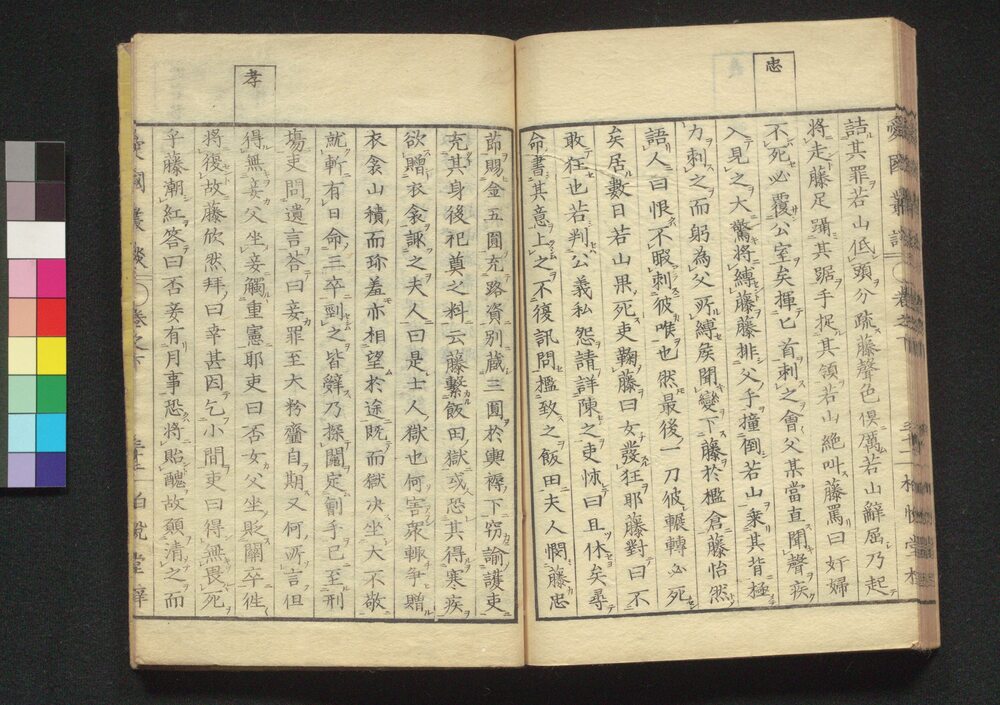 忠
詰其罪若山低頭分疏藤聲色俱厲若山辭屈乃起
將走藤足踊其踞手捉其領若山絶叫藤罵曰奸婦
不死必覆公室矣揮匕首刺之會父某當直聞聲疾
入見之大驚將縛藤藤排父手撞倒若山乗其背極
力刺之而躬為父所縛矦聞變下藤於檻倉藤怡然
語人曰恨不暇刺彼喉也然最後一刀彼輾轉必死
矣居數日若山果死吏鞠藤曰女發狂耶藤對曰不
敢狂也若判公義私怨請詳陳之吏怵曰且休矣尋
命書其意上之不復訊問檻致之飯田夫人憫藤忠
節賜金五圓充路資別藏三圓於輿褥下竊諭護吏
充其身後祀奠之料云藤繫飯田獄或恐其得寒疾
欲贈衣衾諏之夫人曰是士人獄也何害衆輙争贈
衣衾山積而珎羞亦相望於途既而獄决坐大不敬
就斬有日命三卒剄之皆辭乃探鬮定劊手已至刑
塲吏問遺言答曰妾罪至大粉齏自期又何所言但
得無妾父坐妾觸重憲耶吏曰否女父坐貶關卒徃
將復故藤欣然拜曰幸甚因乞小間吏曰得無畏死
乎藤潮紅答曰否妾有月事恐將貽醜故願清之而
孝